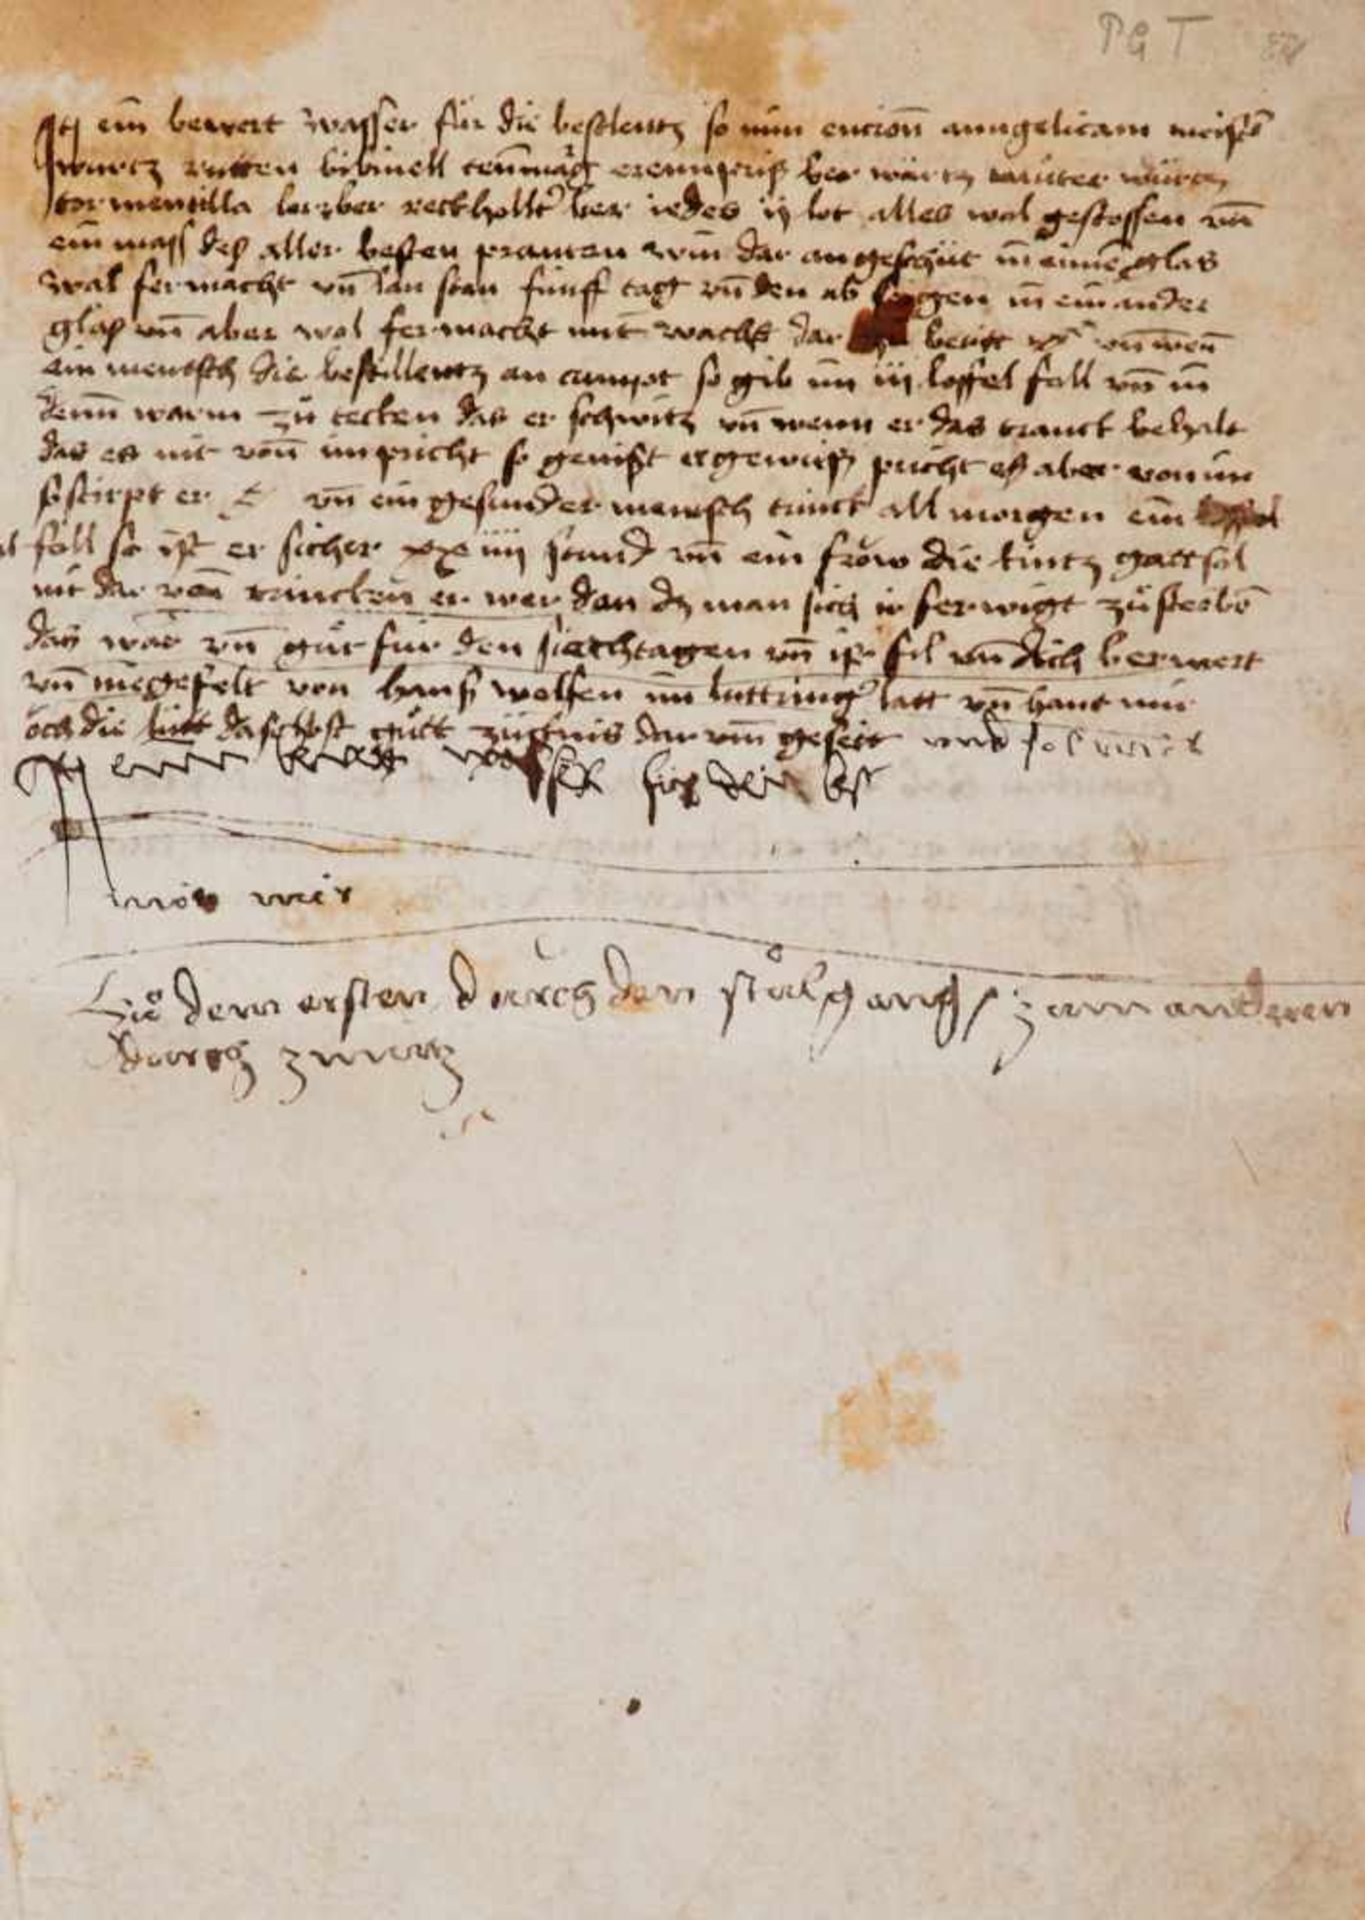 PGT
Itē ein bewert wasser für die bestlentz so nim encion anngelicam meist
wurtz rutten bibinell
tormentilla lorber reckhollter ber iedes ij lot alles wol gestossen vn̄
ein mass des aller besten pranten win dar an geschüt in einē glas
wol fermacht vn̄ lan stan fünff tag vn̄ den ab in ein ander
glas vn̄ aber wol fermacht mit wachs dar vn̄ wen̄
ein mentsch die bestillentz an cumpt so gib im iij loffel foll vn̄ in
denn warm zů tecken das er schwitz vn̄ wenn er das tranck behalt
das es nit von im pricht so genist er gewiss pricht es aber von im
so stirpt er vn̄ ein gesunder mentsch trinck all morgen ein loffel
foll so ist er sicher xxiiij stund vn̄ ein frow die kintz gatt sol
nit dar von trincken er wer dan dz man sich ir ferwigt zů sterbē
das war vn̄ gůt für den siechtagen vn̄ ist fil vn̄ dich berwert
vn̄ nie gefelt von hans wolfen im luttringer latt vn̄ hant mir
och die lütt daselbst gůtt zügnis dar vm̄ geseit vnd
Itē wasser für die best
wir
Zů dem ersten durch den stůlgang / zum anderen
durch